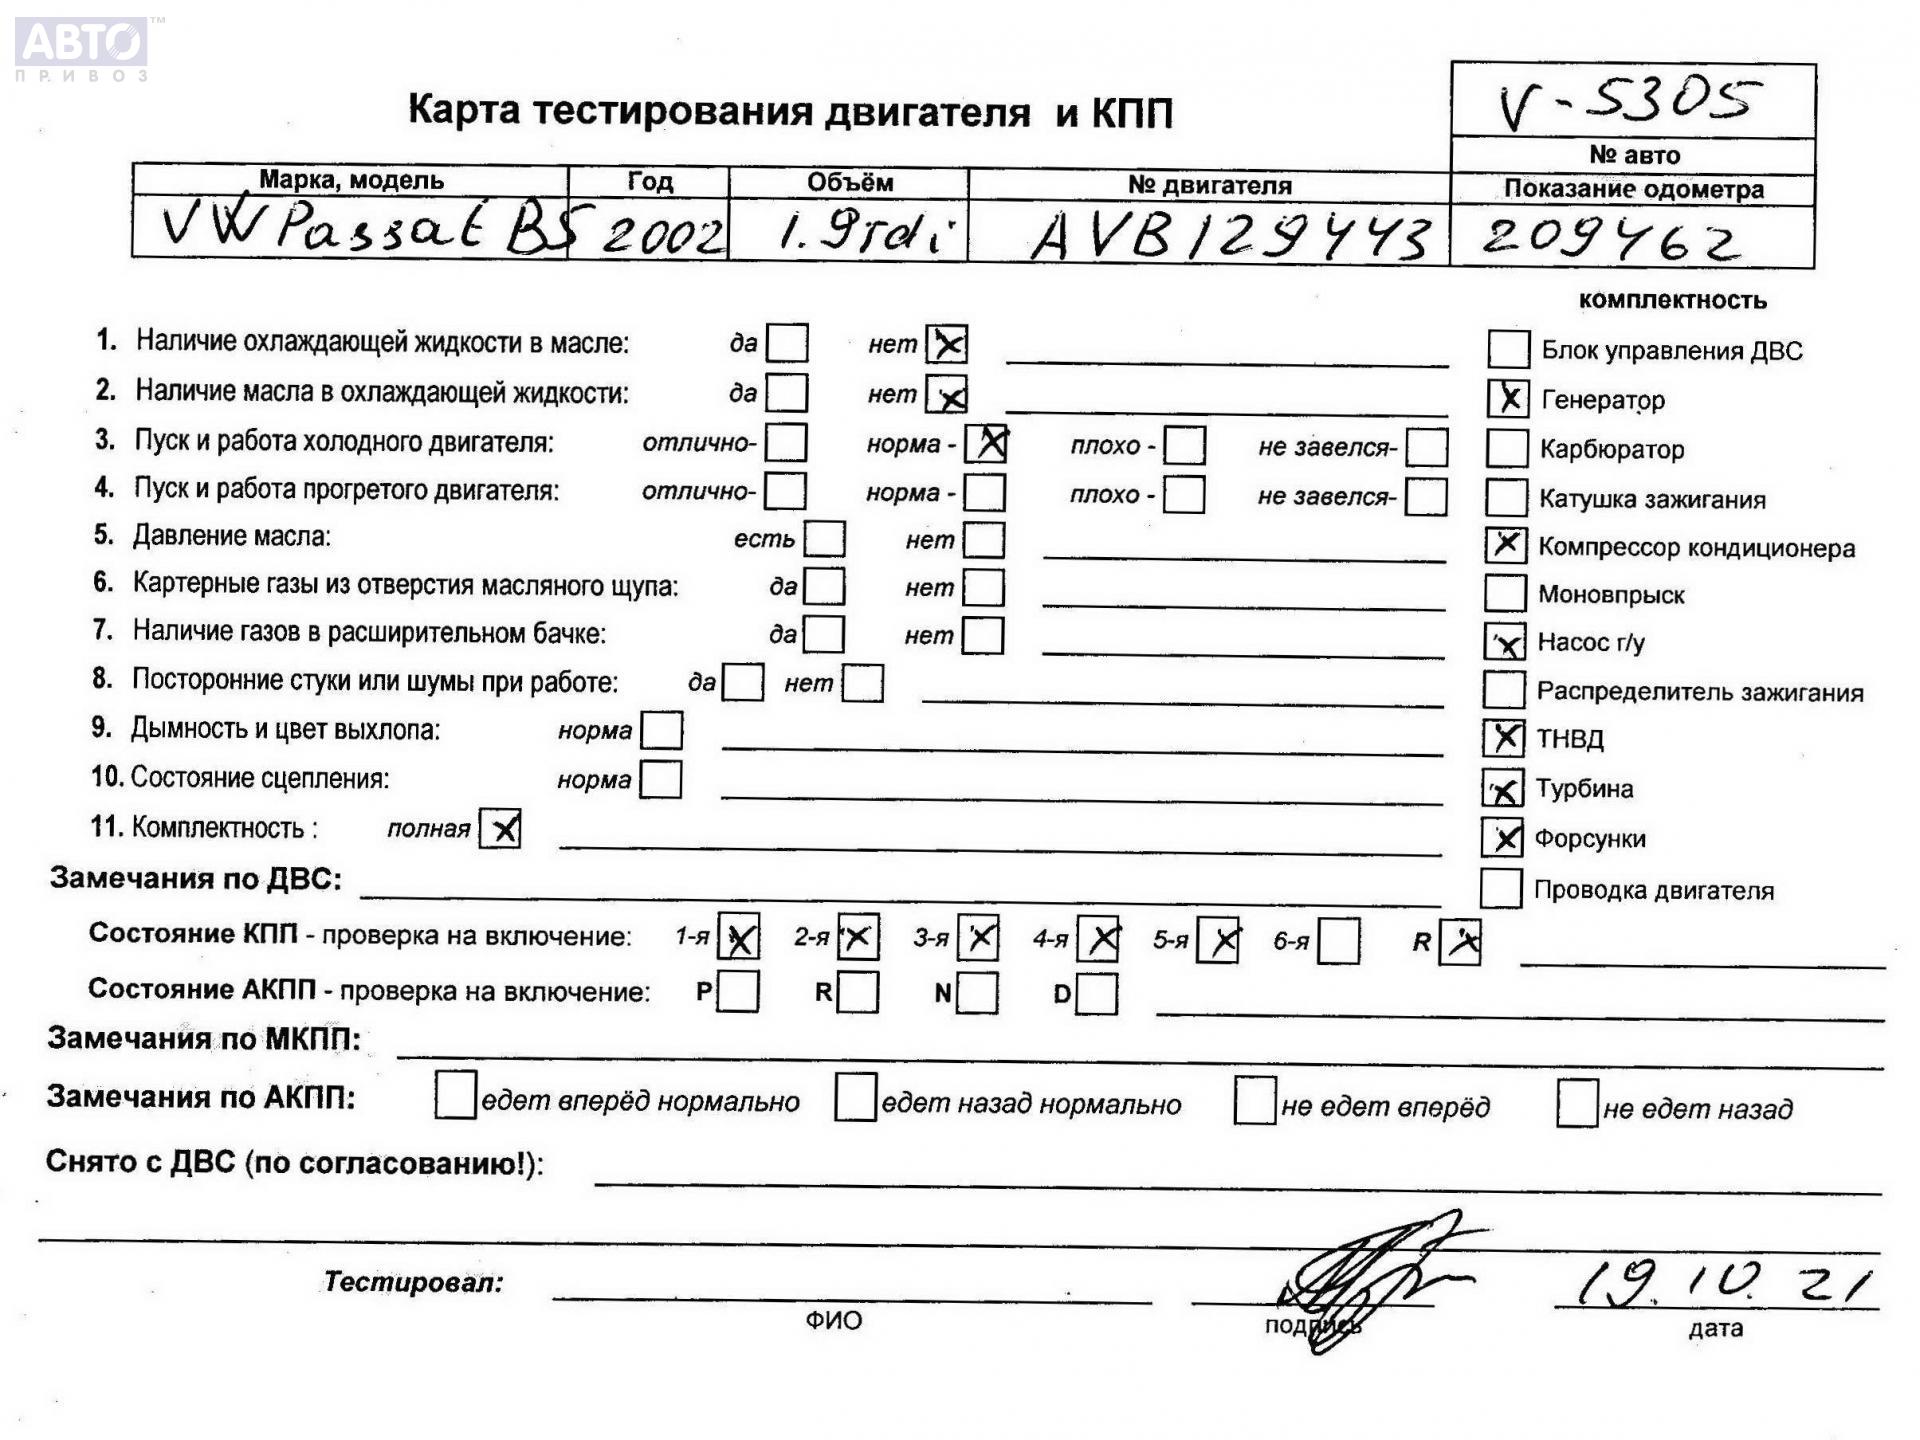 АВТО™
ПРИВОЗ
V-5305
Карта тестирования двигателя и КПП
№ авто
Марка, модель Год Объём № двигателя Показание одометра
VW Passat B5 2002 1.9 Tdi AVB129443 209462
комплектность
1. Наличие охлаждающей жидкости в масле: да нет Блок управления ДВС
2. Наличие масла в охлаждающей жидкости: да нет Генератор
3. Пуск и работа холодного двигателя: отлично- норма - плохо - не завелся- Карбюратор
4. Пуск и работа прогретого двигателя: отлично- норма - плохо - не завелся- Катушка зажигания
5. Давление масла: есть нет Компрессор кондиционера
6. Картерные газы из отверстия масляного щупа: да нет Моновпрыск
7. Наличие газов в расширительном бачке: да нет Насос г/у
8. Посторонние стуки или шумы при работе: да нет Распределитель зажигания
9. Дымность и цвет выхлопа: норма ТНВД
10. Состояние сцепления: норма Турбина
11. Комплектность : полная Форсунки
Замечания по ДВС: Проводка двигателя
Состояние КПП - проверка на включение: 1-я 2-я 3-я 4-я 5-я 6-я R
Состояние АКПП - проверка на включение: P R N D
Замечания по МКПП:
Замечания по АКПП: едет вперёд нормально едет назад нормально не едет вперёд не едет назад
Снято с ДВС (по согласованию!):
Тестировал: 19.10.21
ФИО подпись дата